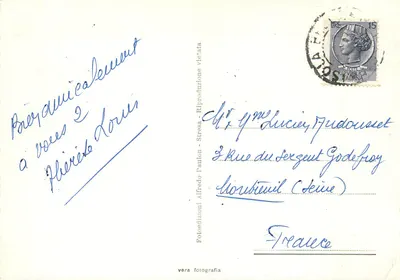 Bien amicalement
à vous 2
Thérèse Louis
Fotoedizioni Alfredo Paulon - Stresa - Riproduzione vietata
15
ISOLA
Mr & Mme Lucien Audousset
3 Rue du Sergent Godefroy
Montreuil (Seine)
France
vera fotografia